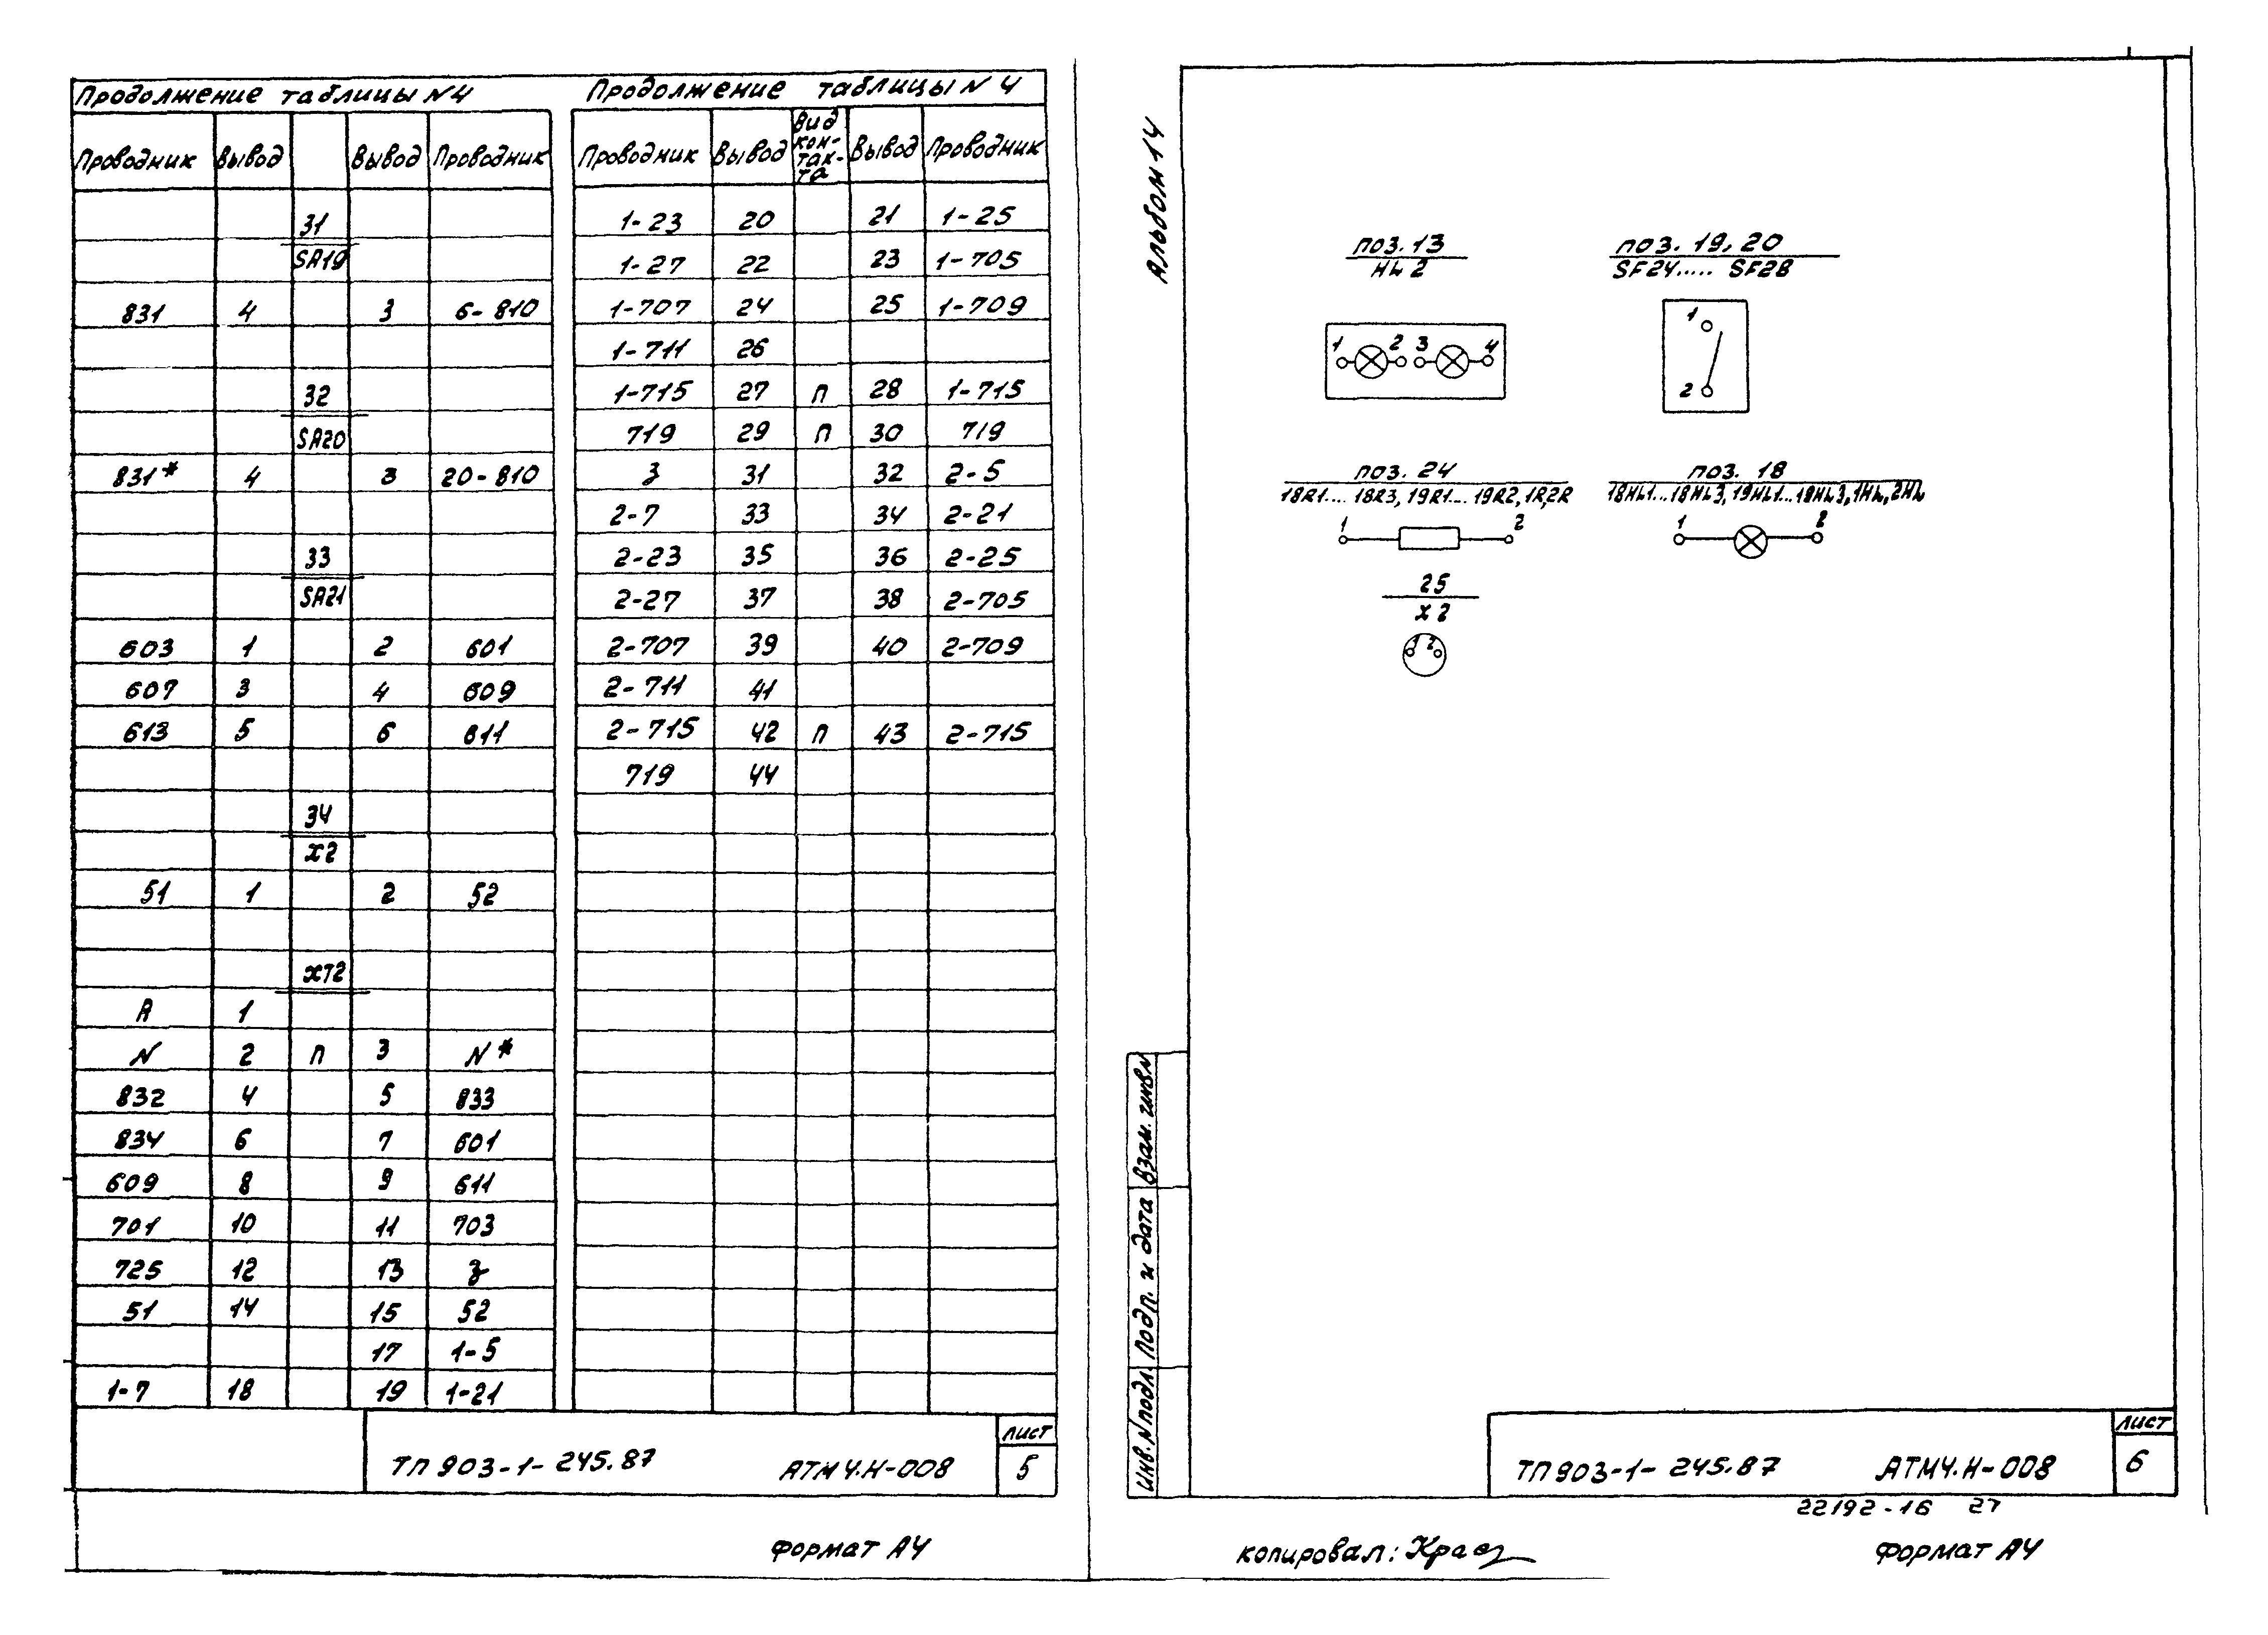 Продолжение таблицы N4
Проводник Вывод Вывод Проводник
31
SA19
831 4 3 6-810
32
SA20
831* 4 3 20-810
33
SA21
603 1 2 601
607 3 4 609
613 5 6 611
34
X2
51 1 2 52
XT2
A 1
N 2 П 3 N*
832 4 5 833
834 6 7 601
609 8 9 611
701 10 11 703
725 12 13
51 14 15 52
17 1-5
1-7 18 19 1-21
Продолжение таблицы N 4
Проводник Вывод Вид кон-так-та Вывод Проводник
1-23 20 21 1-25
1-27 22 23 1-705
1-707 24 25 1-709
1-711 26
1-715 27 П 28 1-715
719 29 П 30 719
31 32 2-5
2-7 33 34 2-21
2-23 35 36 2-25
2-27 37 38 2-705
2-707 39 40 2-709
2-711 41
2-715 42 П 43 2-715
719 44
ТП 903-1-245.87 АТМ4.Н-008
Лист
5
Формат А4
Альбом 14
поз. 13
HL 2
1 2 3 4
поз. 19, 20
SF24..... SF28
1
2
поз. 24
18R1.... 18R3, 19R1.... 19R2, 1R, 2R
1 2
поз. 18
18HL1...18HL3, 19HL1...19HL3, 1HL, 2HL
1 2
25
X 2
1 2
Инв. N подл. Подп. и дата Взам. инв. N
ТП 903-1-245.87 АТМ4.Н-008
Лист
6
22192-16 27
копировал:
Формат А4